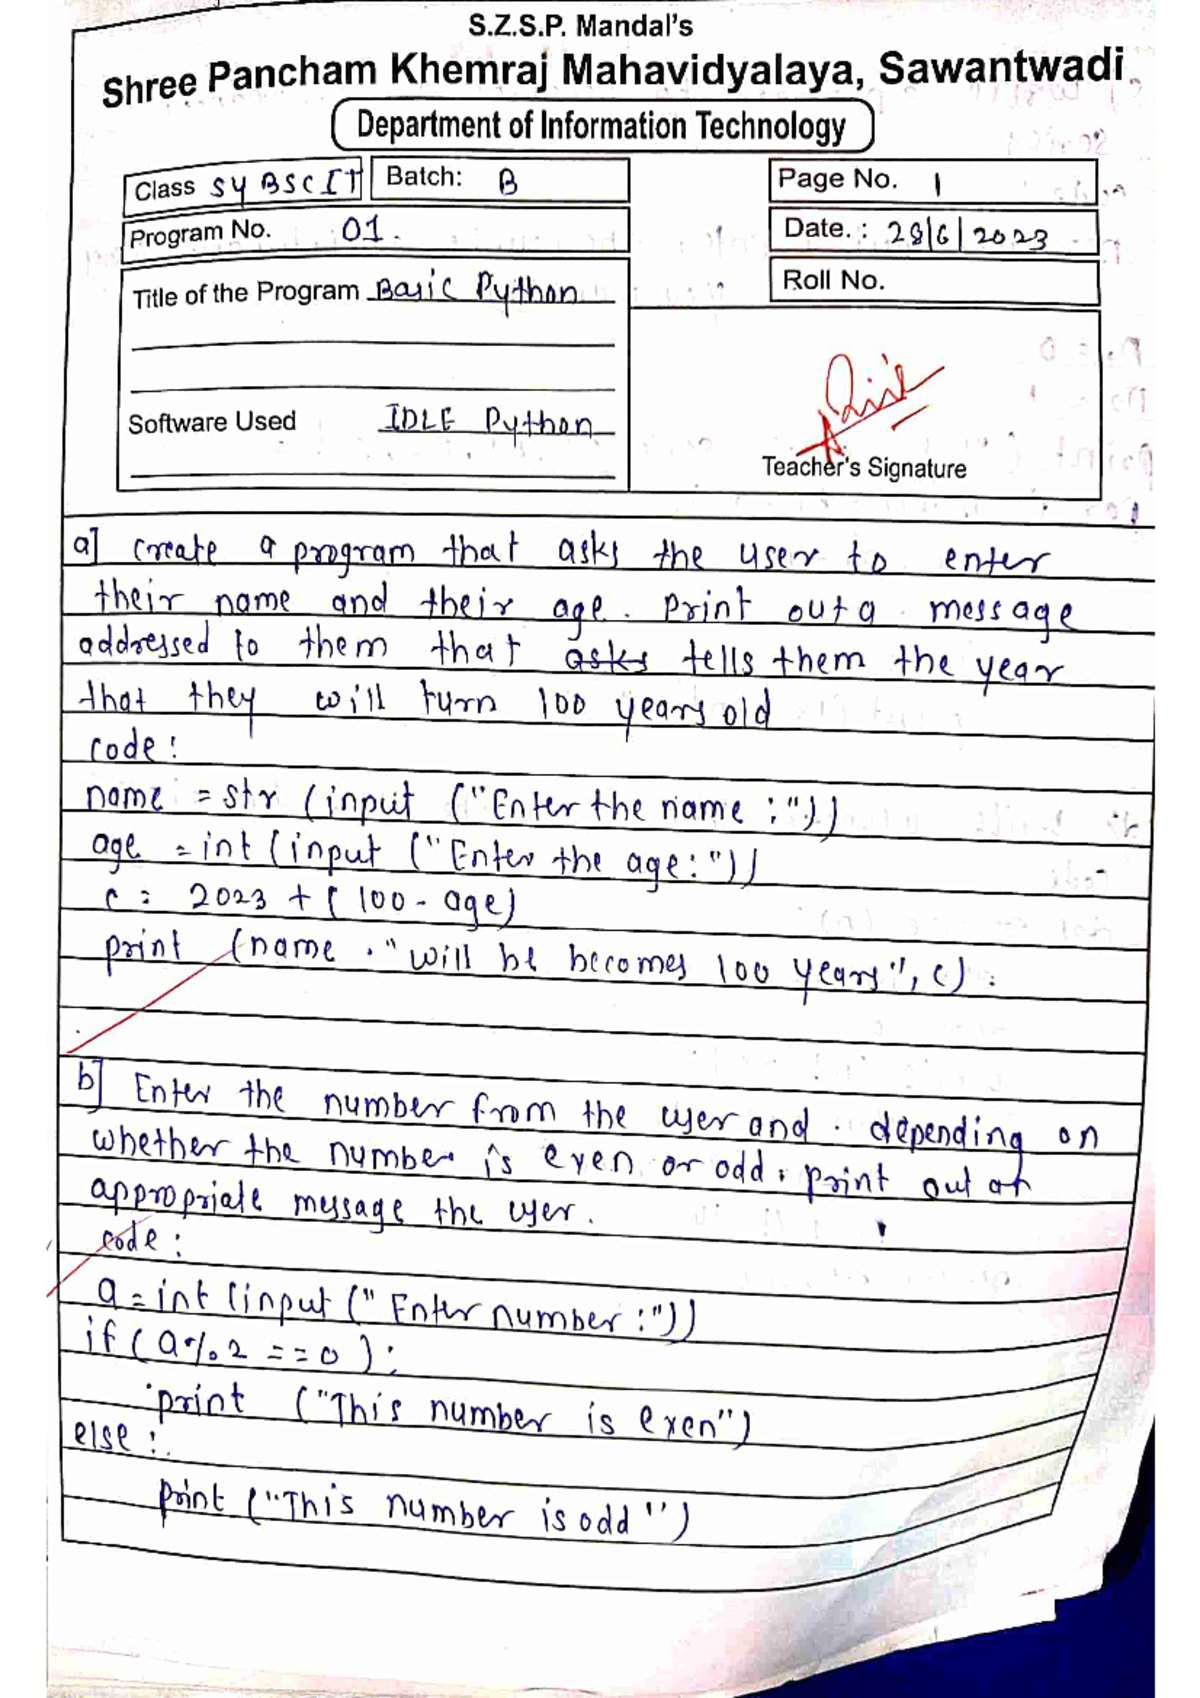 S.Z.S.P. Mandal's
Shree Pancham Khemraj Mahavidyalaya, Sawantwadi
Department of Information Technology
Class SY BSC IT Batch: B
Page No. 1
Program No. 01.
Date. : 28/6/2023
Title of the Program Basic Python
Roll No.
Software Used IDLE Python
Teacher's Signature
a] Create a program that asks the user to enter
their name and their age. Print out a message
addressed to them that asks tells them the year
that they will turn 100 years old
code:
name = str (input ("Enter the name :"))
age = int (input ("Enter the age:"))
c = 2023 + (100 - age)
print (name , "will be becomes 100 years", c)
b] Enter the number from the user and depending on
whether the number is even or odd, print out an
appropriate message the user.
code:
a = int (input (" Enter number :"))
if ( a % 2 == 0 ):
print ("This number is even")
else :
print ("This number is odd")